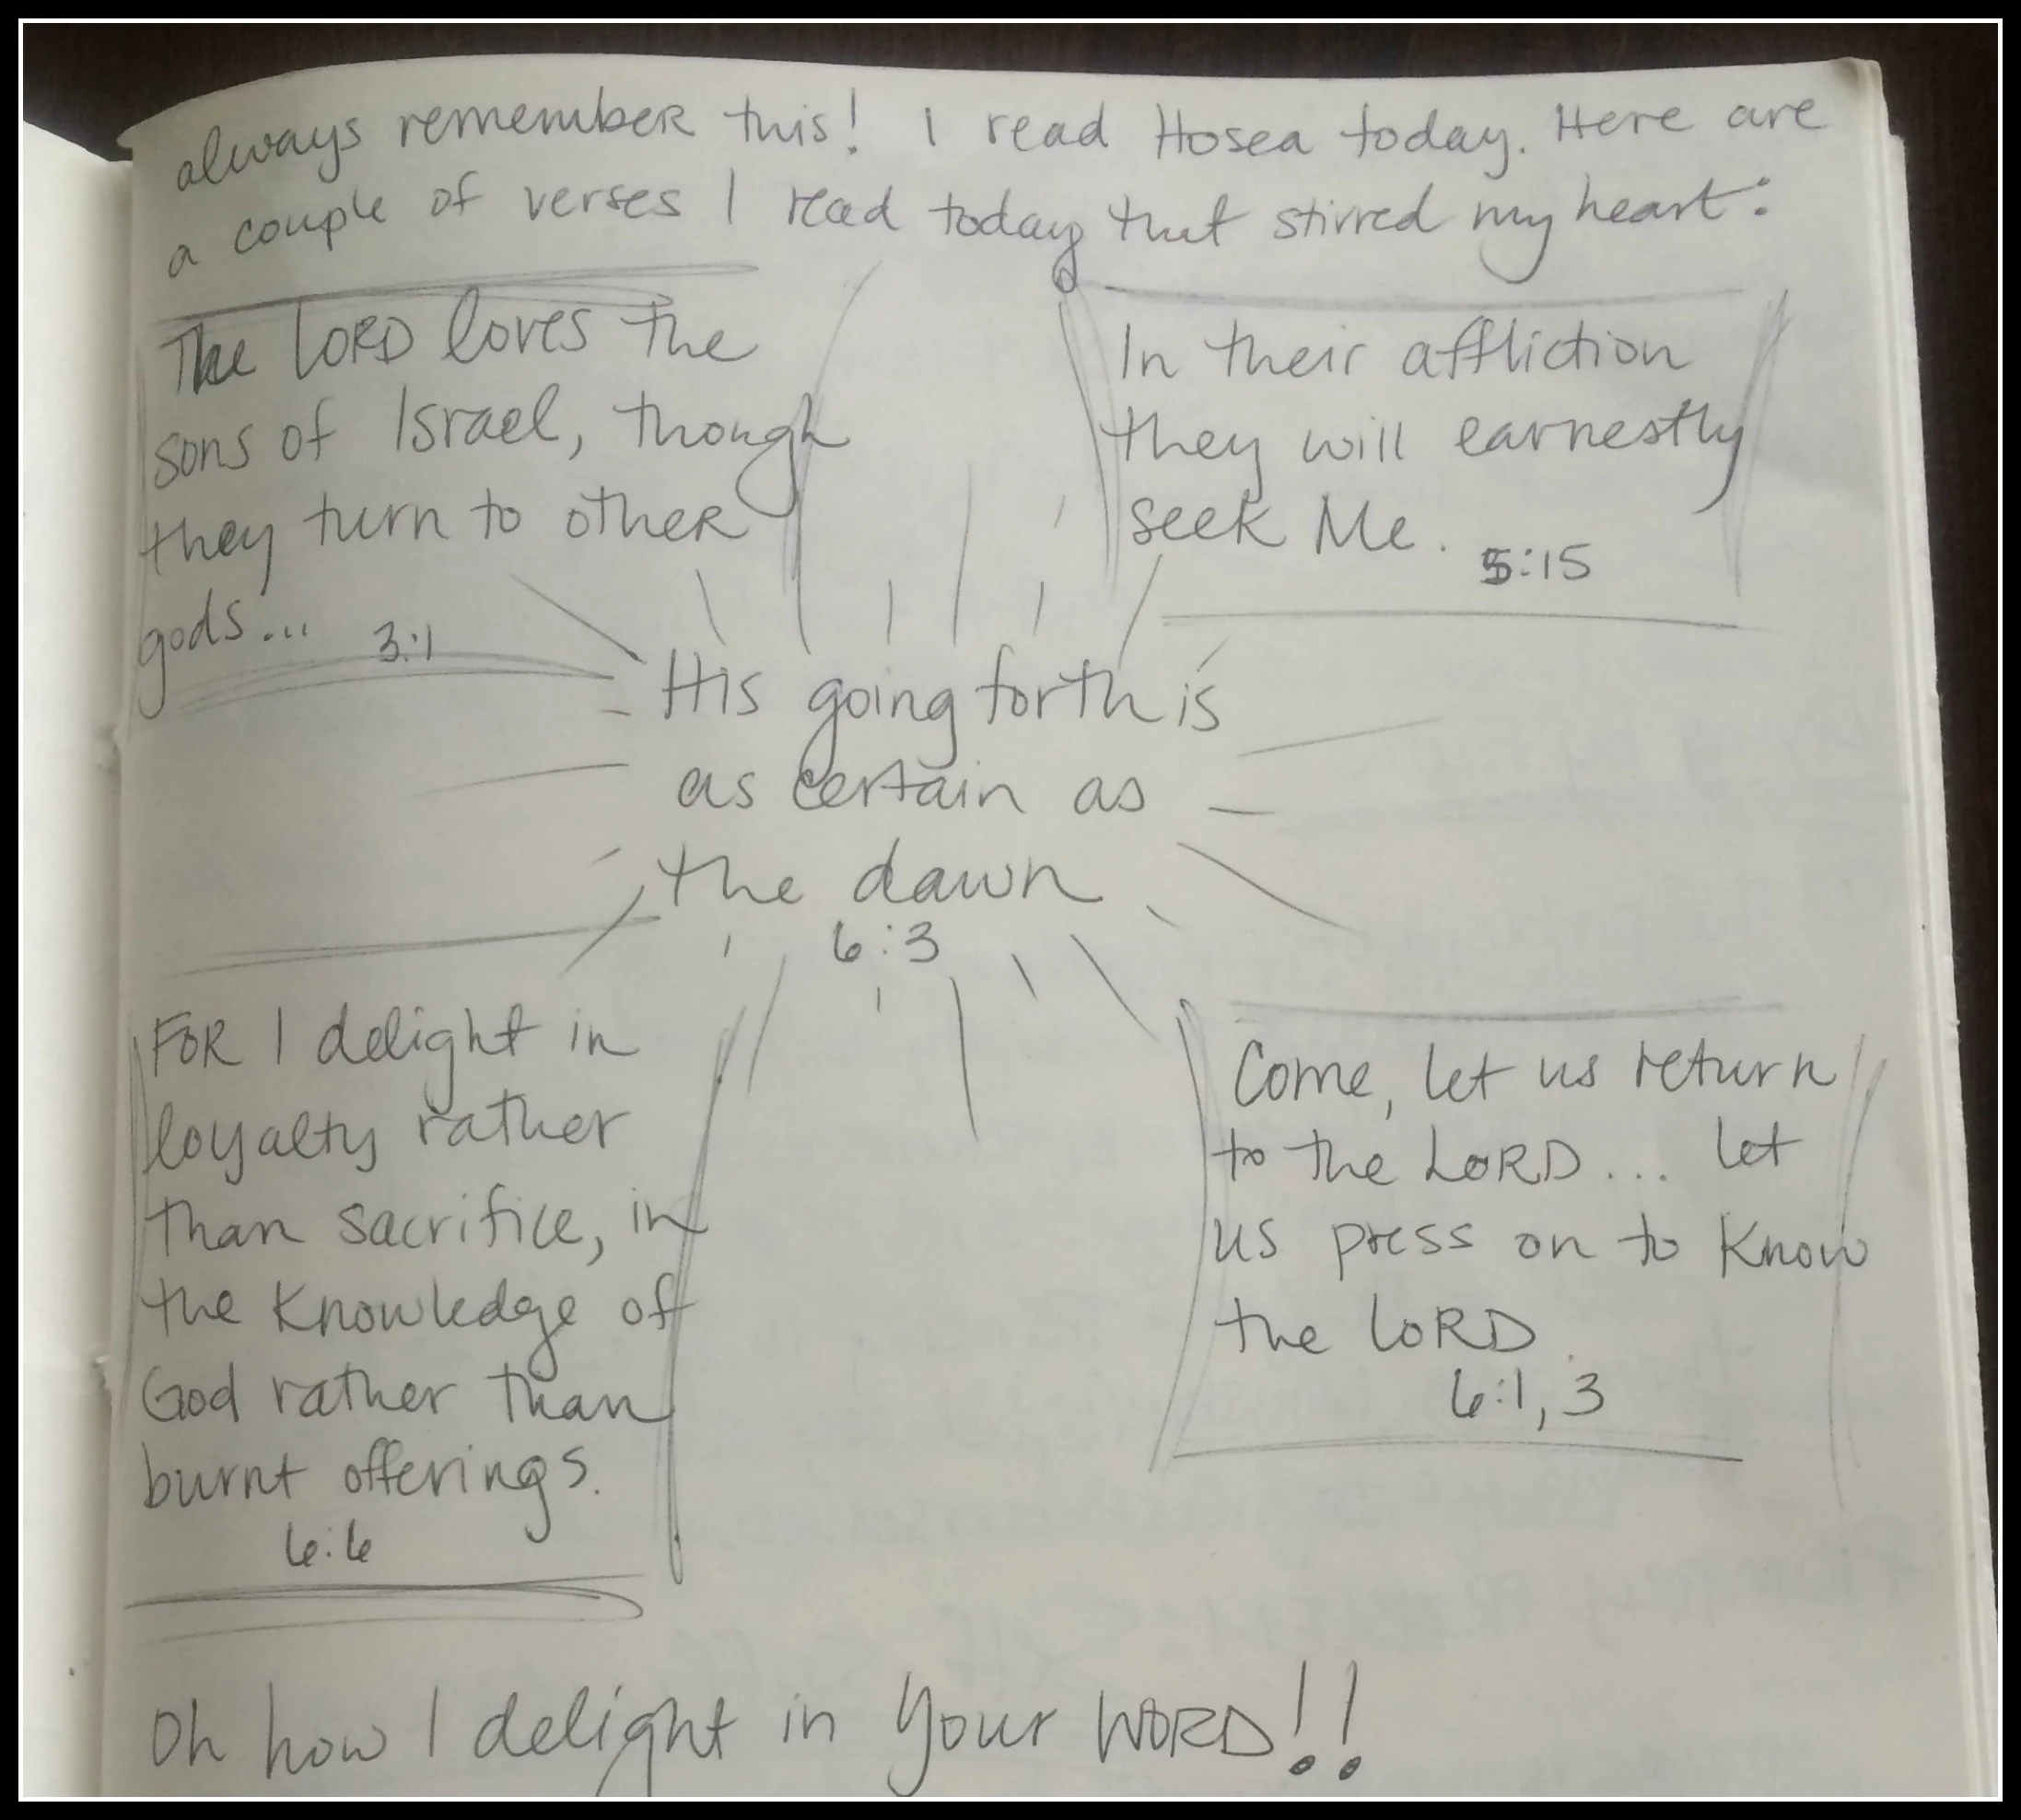 always remember this! I read Hosea today. Here are
a couple of verses I read today that stirred my heart:
The LORD loves the
sons of Israel, though
they turn to other
gods...
3:1
In their affliction
they will earnestly
seek Me.
5:15
His going forth is
as certain as
the dawn
6:3
For I delight in
loyalty rather
than sacrifice, in
the knowledge of
God rather than
burnt offerings.
6:6
Come, let us return
to the LORD... let
us press on to know
the LORD.
6:1,3
Oh how I delight in Your WORD!!